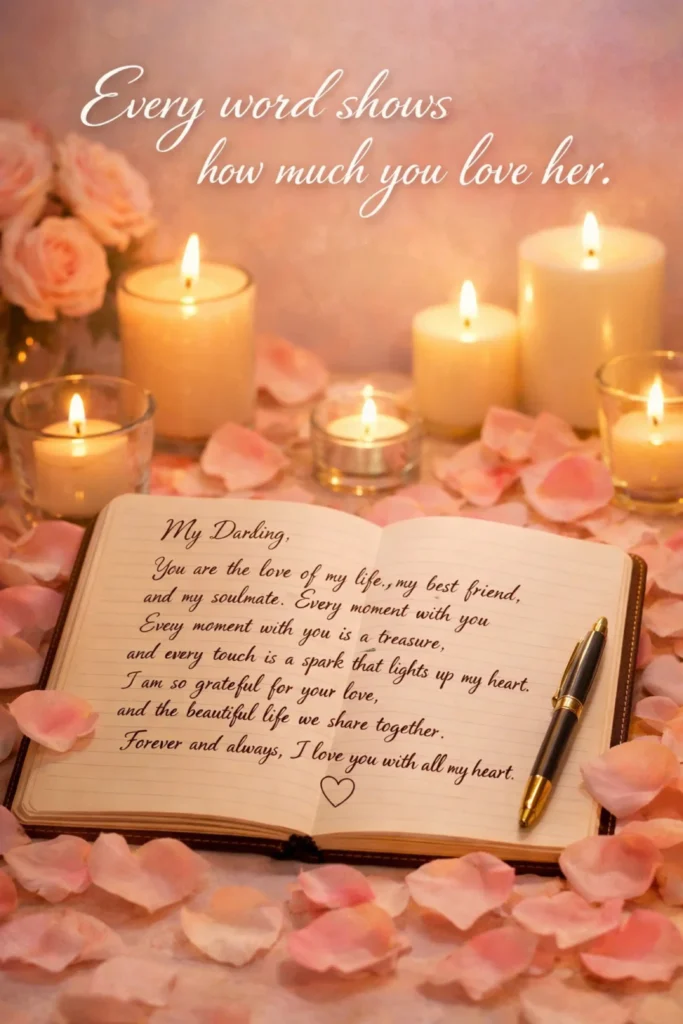 Every word shows
how much you love her.
My Darding,
You are the love of my life., my best friend,
and my soulmate. Every moment with you
Eveıy moment with you is a treasure,
and every touch is a spark that lights up my heart.
I am so grateful for your love,
and the beautiful life we share together.
Forever and always, I love you with all my heart.